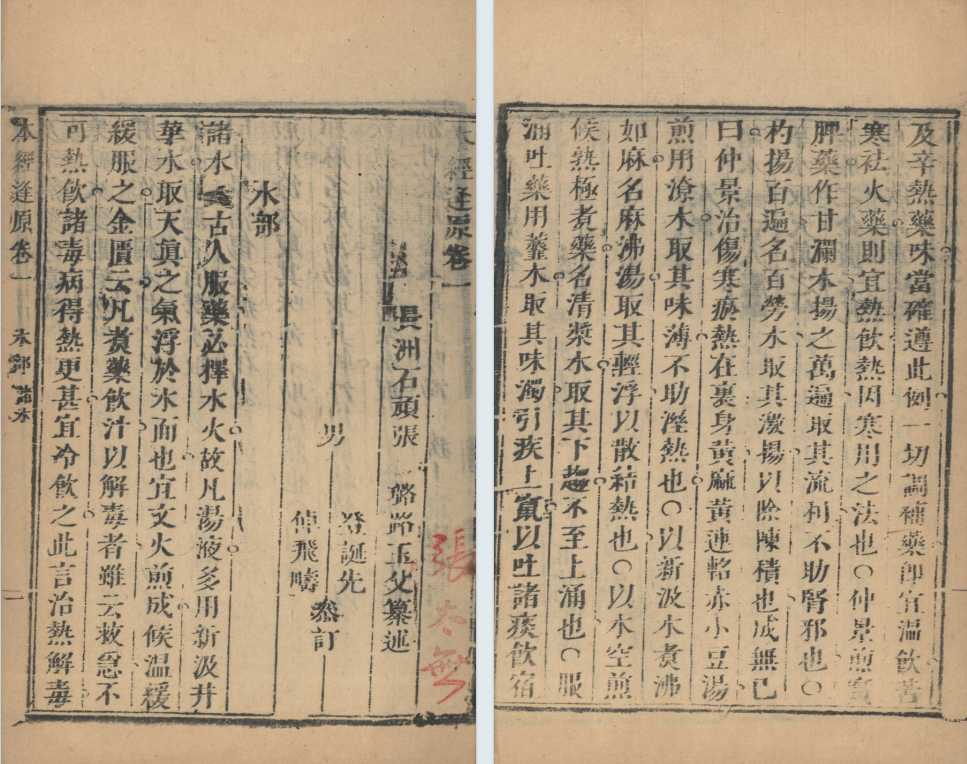 本經逢原卷一
張太無
長洲石頑張 璐路玉父纂述
男 登誕先
倬飛疇 參訂
水部
諸水 古人服藥必擇水火故凡湯液多用新汲井
華水取天眞之氣浮於水面也宜文火煎成候温緩
緩服之金匱云凡煮藥飲汁以解毒者雖云救急不
可熱飲諸毒病得熱更甚宜冷飲之此言治熱解毒
本經逢原卷一 水部 諸水 一
及辛熱藥味當確遵此例一切調補藥即宜温飲苦
寒祛火藥則宜熱飲熱因寒用之法也○仲景煎實
脾藥作甘瀾水揚之萬遍取其流利不助腎邪也○
杓揚百遍名百勞水取其激揚以除陳積也成無已
曰仲景治傷寒瘀熱在裏身黃麻黃連軺赤小豆湯
煎用潦水取其味薄不助溼熱也○以新汲水煮沸
如麻名麻沸湯取其輕浮以散結熱也○以水空煎
候熱極煮藥名清漿水取其下趨不至上涌也○服
涌吐藥用虀水取其味濁引疾上竄以吐諸痰飲宿